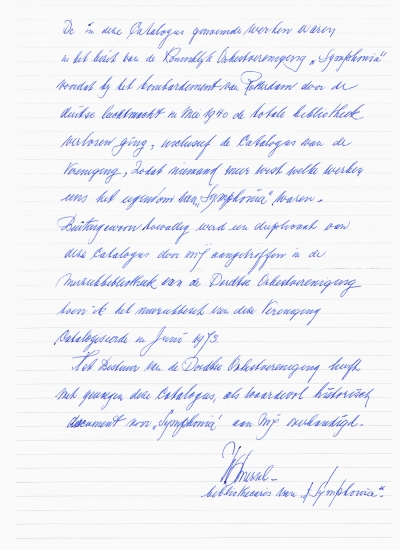 De in deze Catalogus genoemde werken waren
in het bezit van de Koninklijk Orkestvereeniging „Symphonia”
voordat bij het bombardement van Rotterdam door de
duitse luchtmacht in Mei 1940 de totale bibliotheek
verloren ging, inclusief de Catalogus van de
Vereniging, zodat niemand meer wist welke werken
eens het eigendom van „Symphonia” waren.
Buitengewoon toevallig werd een duplicaat van
deze Catalogus door mij aangetroffen in de
muziekbibliotheek van de Dordtse Orkestvereniging
toen ik het muziekbezit van deze Vereniging
Catalogiseerde in Juni 1973.
Het Bestuur van de Dordtse Orkestvereniging heeft
met genoegen deze Catalogus, als waardevol historisch
document voor „Symphonia” aan mij overhandigd.
bibliothecaris van „Symphonia”.